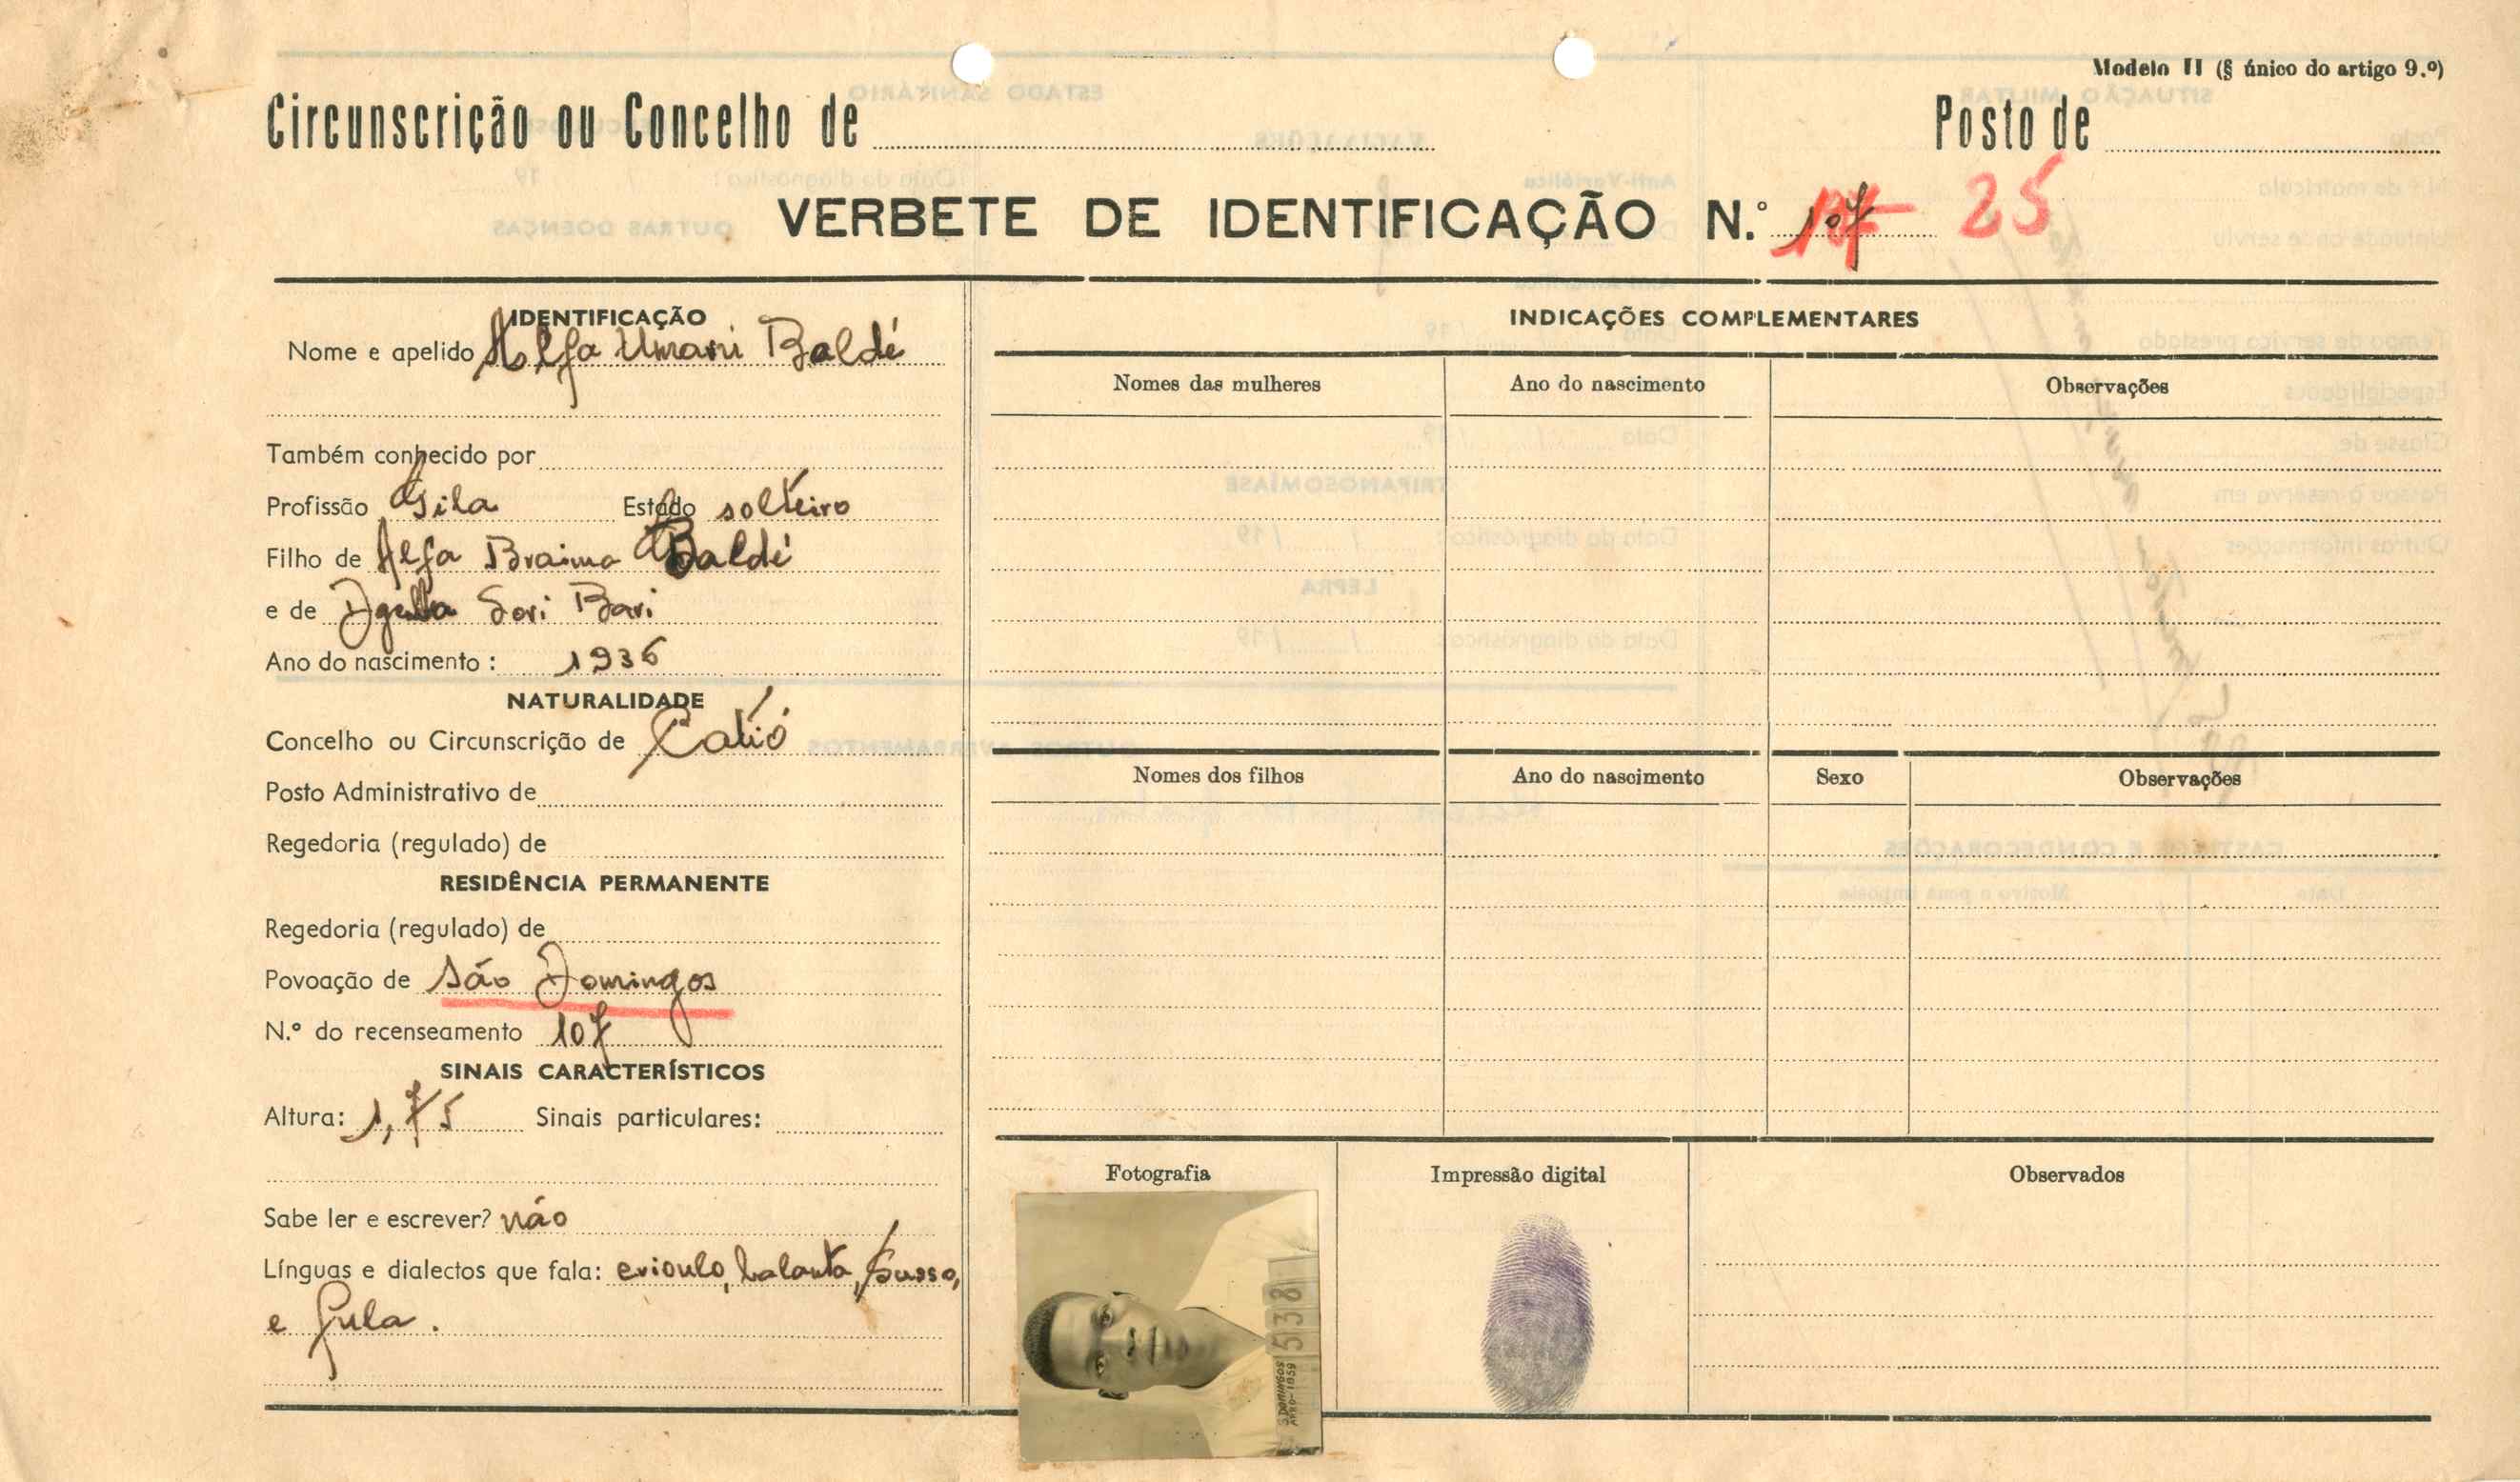 Modelo II (§ único do artigo 9.º)
Circunscrição ou Concelho de
Posto de
VERBETE DE IDENTIFICAÇÃO N.º 107 25
IDENTIFICAÇÃO
Nome e apelido Alfa Umaru Baldé
Também conhecido por
Profissão Gila Estado solteiro
Filho de Alfa Braima Baldé
e de Sori Bari
Ano do nascimento: 1936
NATURALIDADE
Concelho ou Circunscrição de Catió
Posto Administrativo de
Regedoria (regulado) de
RESIDÊNCIA PERMANENTE
Regedoria (regulado) de
Povoação de São Domingos
N.º do recenseamento 107
SINAIS CARACTERÍSTICOS
Altura: 1,75 Sinais particulares:
Sabe ler e escrever? não
Línguas e dialectos que fala: crioulo, balanta, Susso,
e fula.
INDICAÇÕES COMPLEMENTARES
Nomes das mulheres Ano do nascimento Observações
Nomes dos filhos Ano do nascimento Sexo Observações
Fotografia Impressão digital Observados
5381
S. DOMINGOS